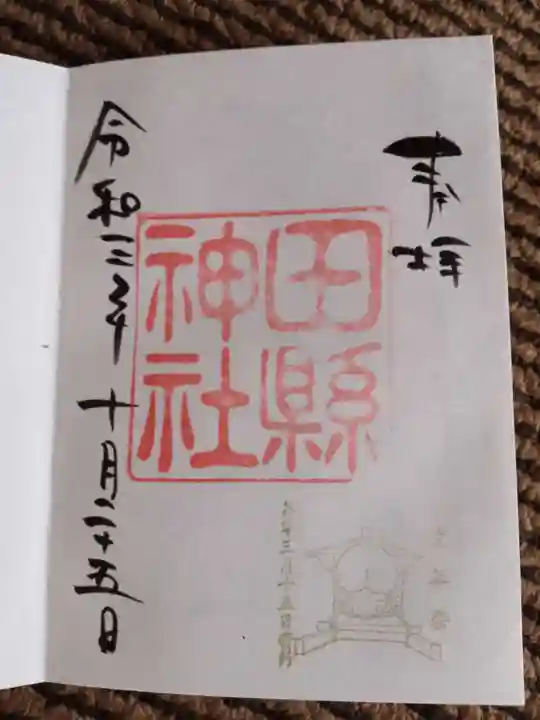 奉拝
田縣
神社
令和三年十月二十五日
豊年祭